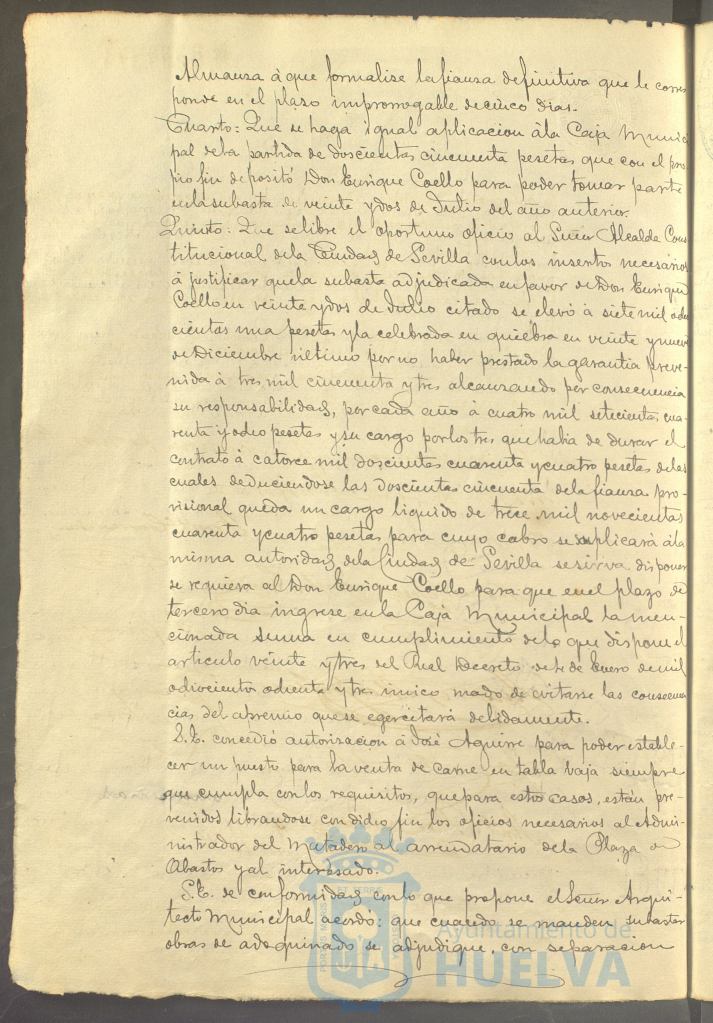 Almansa á que formalise la fianza definitiva que le corres
ponde en el plazo improrrogable de cinco dias.
Cuarto: Que se haga igual aplicacion á la Caja Munici
pal de la partida de doscientas cincuenta pesetas que con el pro
pio fin depositó Don Enrique Coello para poder tomar parte
en la subasta de veinte y dos de Julio del año anterior.
Quinto: Que se libre el oportuno oficio al Señor Alcalde Cons
titucional de la Ciudad de Sevilla con los insertos necesarios
á justificar que la subasta adjudicada en favor de Don Enrique
Coello en veinte y dos de Julio citado se elevó á siete mil ocho
cientas una pesetas y la celebrada en quiebra en veinte y nueve
de Diciembre último por no haber prestado la garantia preve-
nida á tres mil cincuenta y tres alcanzando por consecuencia
su responsabilidad, por cada año á cuatro mil setecientas cua-
renta y ocho pesetas y su cargo por los tres que habia de durar el
contrato á catorce mil doscientas cuarenta y cuatro pesetas de las
cuales deduciendose las doscientas cincuenta de la fianza pro-
visional queda un cargo liquido de trece mil novecientas
cuarenta y cuatro pesetas para cuyo cobro se suplicará á la
misma autoridad de la Ciudad de Sevilla se sirva disponer
se requiera al Don Enrique Coello para que en el plazo de
tercero dia ingrese en la Caja Municipal la men-
cionada suma en cumplimiento de lo que dispone el
articulo veinte y tres del Real Decreto de 4 de Enero de mil
ochocientos ochenta y tres único modo de evitarse las consecuen
cias del apremio que se egercitará debidamente.
S.E. concedió autorizacion á José Aguirre para poder estable-
cer un puesto para la venta de carne en tabla baja siempre
que cumpla con los requisitos, que para estos casos, están pre-
venidos librandose con dicho fin los oficios necesarios al Admi-
nistrador del Matadero al arrendatario de la Plaza de
Abastos y al interesado.
S.E. de conformidad con lo que propone el Señor Arqui-
tecto Municipal acordó: que cuando se manden subastar
obras de adoquinado se adjudique, con separacion
Ayuntamiento de
HUELVA